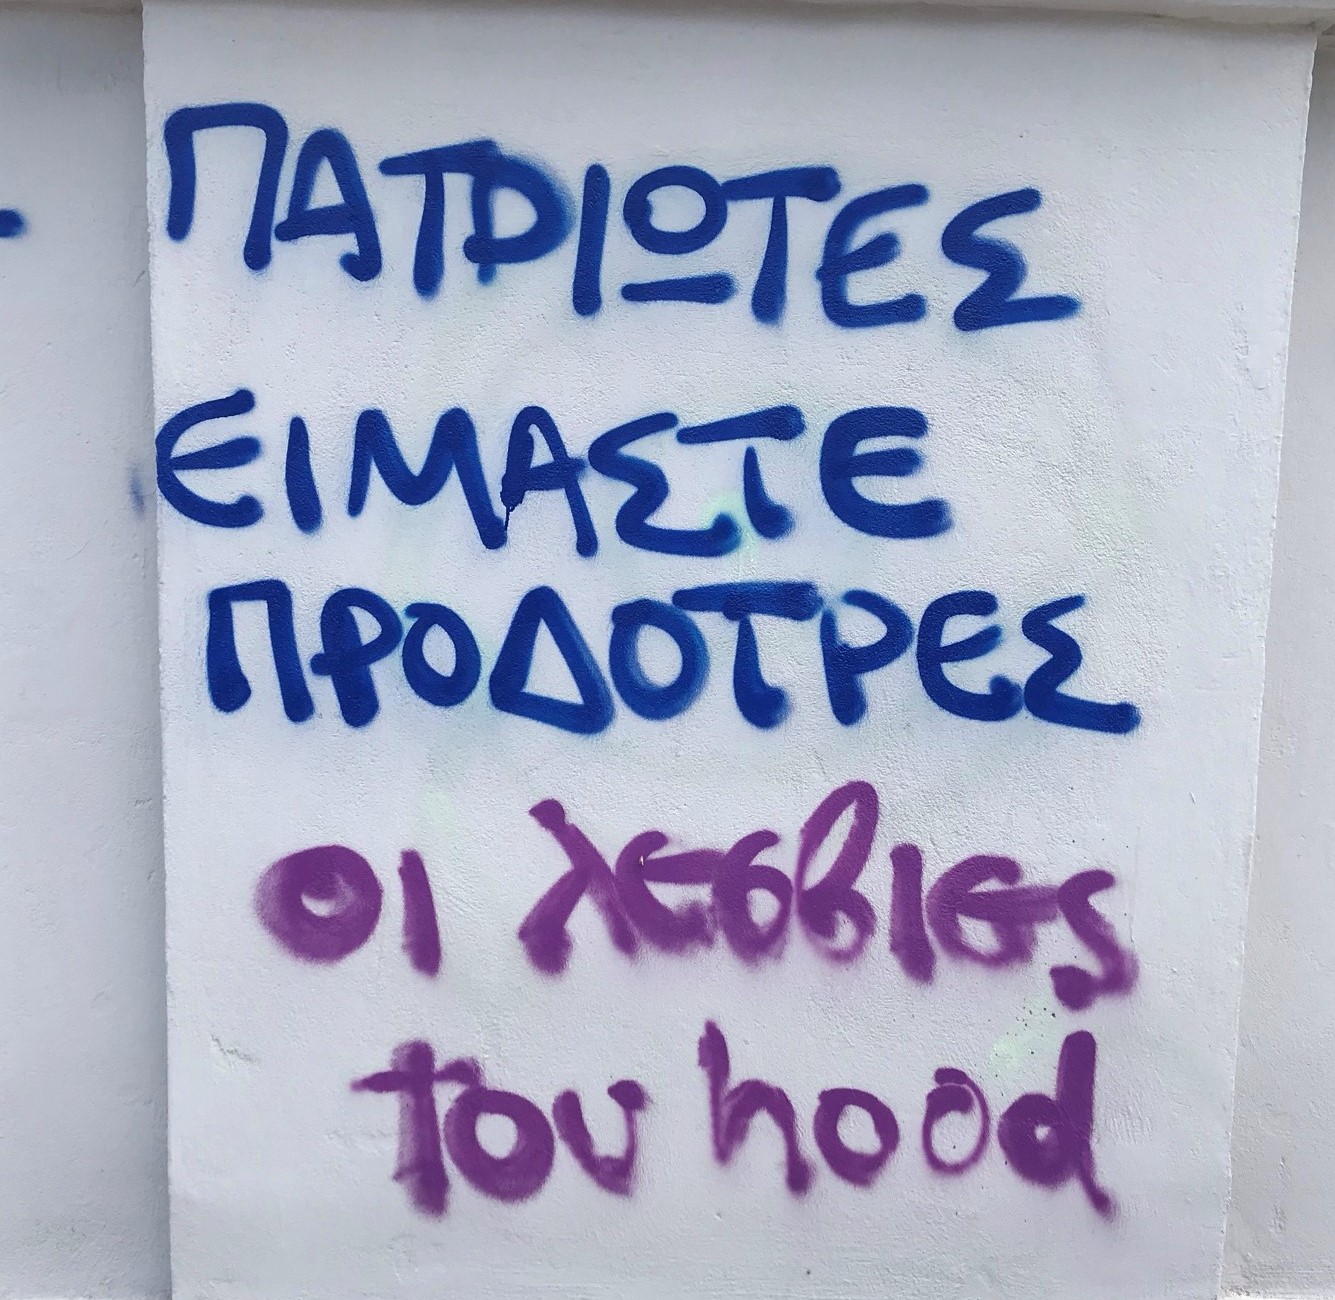 ΠΑΤΡΙΩΤΕΣ
ΕΙΜΑΣΤΕ
ΠΡΟΔΟΤΡΕΣ
οι λεσβιες
του hood